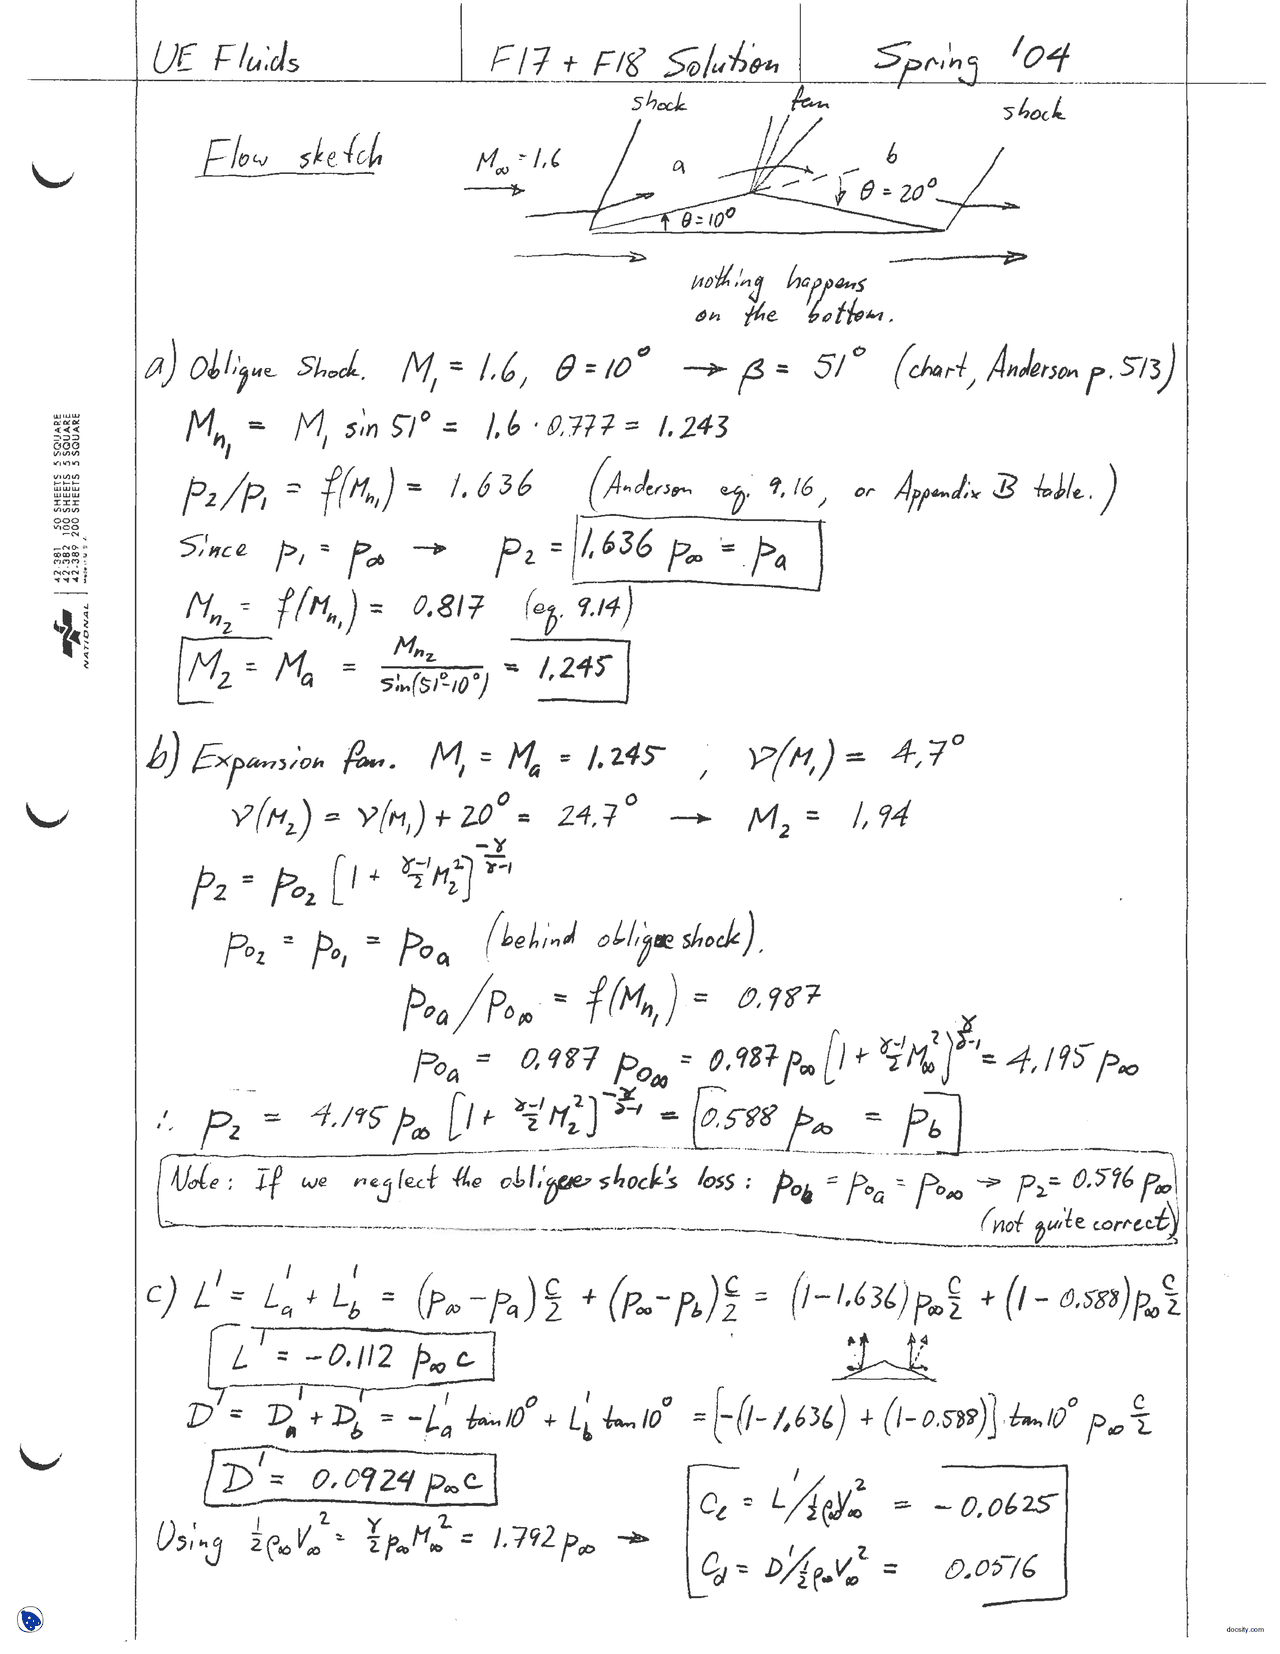 UE Fluids F17 + F18 Solution Spring '04
shock fan shock
Flow sketch M∞ = 1.6 a b
θ = 20°
θ = 10°
nothing happens
on the bottom.
a) Oblique Shock. M₁ = 1.6, θ = 10° → β = 51° (chart, Anderson p. 513)
Mn₁ = M₁ sin 51° = 1.6 · 0.777 = 1.243
p₂/p₁ = f(Mn₁) = 1.636 (Anderson eq. 9.16, or Appendix B table.)
Since p₁ = p∞ → p₂ = 1.636 p∞ = pa
Mn₂ = f(Mn₁) = 0.817 (eq. 9.14)
M₂ = Ma = Mn₂ / sin(51°-10°) = 1.245
b) Expansion fan. M₁ = Ma = 1.245 , ν(M₁) = 4.7°
ν(M₂) = ν(M₁) + 20° = 24.7° → M₂ = 1.94
p₂ = po₂ [1 + γ-1/2 M₂²]^(-γ/γ-1)
po₂ = po₁ = poa (behind oblique shock).
poa/po∞ = f(Mn₁) = 0.987
poa = 0.987 po∞ = 0.987 p∞ [1 + γ-1/2 M∞²]^(γ/γ-1) = 4.195 p∞
∴ p₂ = 4.195 p∞ [1 + γ-1/2 M₂²]^(-γ/γ-1) = 0.588 p∞ = pb
Note: If we neglect the oblique shock's loss: pob = poa = po∞ → p₂ = 0.596 p∞
(not quite correct)
c) L' = L'a + L'b = (p∞ - pa) c/2 + (p∞ - pb) c/2 = (1 - 1.636) p∞ c/2 + (1 - 0.588) p∞ c/2
L' = -0.112 p∞ c
D' = D'a + D'b = -L'a tan 10° + L'b tan 10° = [-(1-1.636) + (1-0.588)] tan 10° p∞ c/2
D' = 0.0924 p∞ c
Using ½ρ∞V∞² = γ/2 p∞ M∞² = 1.792 p∞ →
cℓ = L'/½ρ∞V∞² = -0.0625
cd = D'/½ρ∞V∞² = 0.0516
42-381 50 SHEETS 5 SQUARE
42-382 100 SHEETS 5 SQUARE
42-389 200 SHEETS 5 SQUARE
NATIONAL
docsity.com